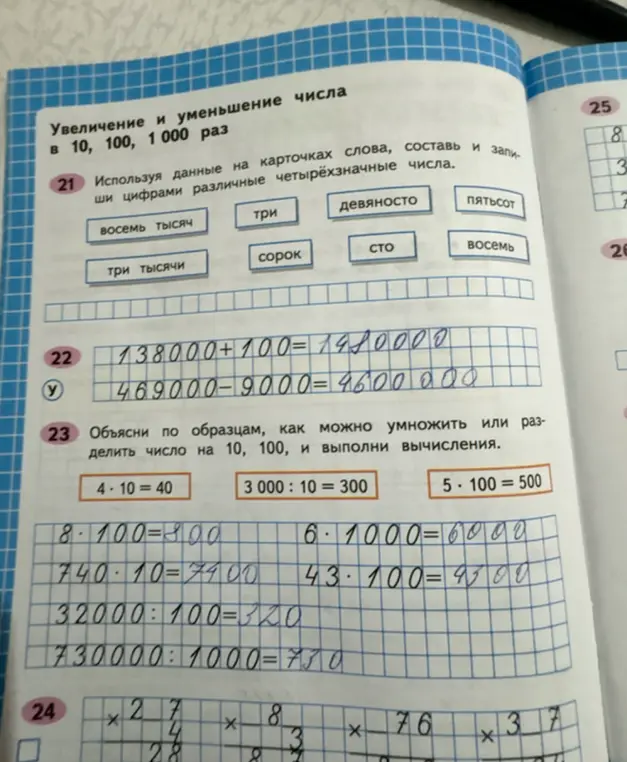 Увеличение и уменьшение числа
в 10, 100, 1 000 раз
25
21 Используя данные на карточках слова, составь и запи-
ши цифрами различные четырёхзначные числа.
восемь тысяч три девяносто пятьсот
три тысячи сорок сто восемь
22 138000+100=1480000
У 469000-9000=4600000
23 Объясни по образцам, как можно умножить или раз-
делить число на 10, 100, и выполни вычисления.
4 · 10 = 40 3 000 : 10 = 300 5 · 100 = 500
8 · 100=800 6 · 1000=6000
740 · 10=7400 43 · 100=4300
32000 : 100=320
730000 : 1000=730
24 × 2 7 × 8 × 76 × 3 7
4 3
28 8 7
8
3